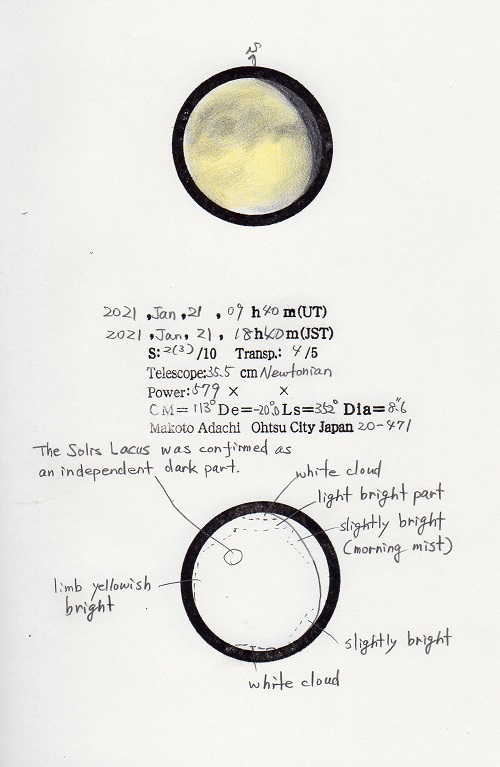 S
2021 , Jan , 21 , 09 h 40 m (UT)
2021 , Jan , 21 , 18 h 40 m (JST)
S: 2(3) /10 Transp.: 4 /5
Telescope: 35.5 cm Newtonian
Power: 579 × ×
CM = 113° De = -20°.0 Ls = 352° Dia = 8."6
Makoto Adachi Ohtsu City Japan 20-471
The Solis Lacus was confirmed as
an independent dark part.
white cloud
light bright part
slightly bright
(morning mist)
limb yellowish
bright
slightly bright
white cloud